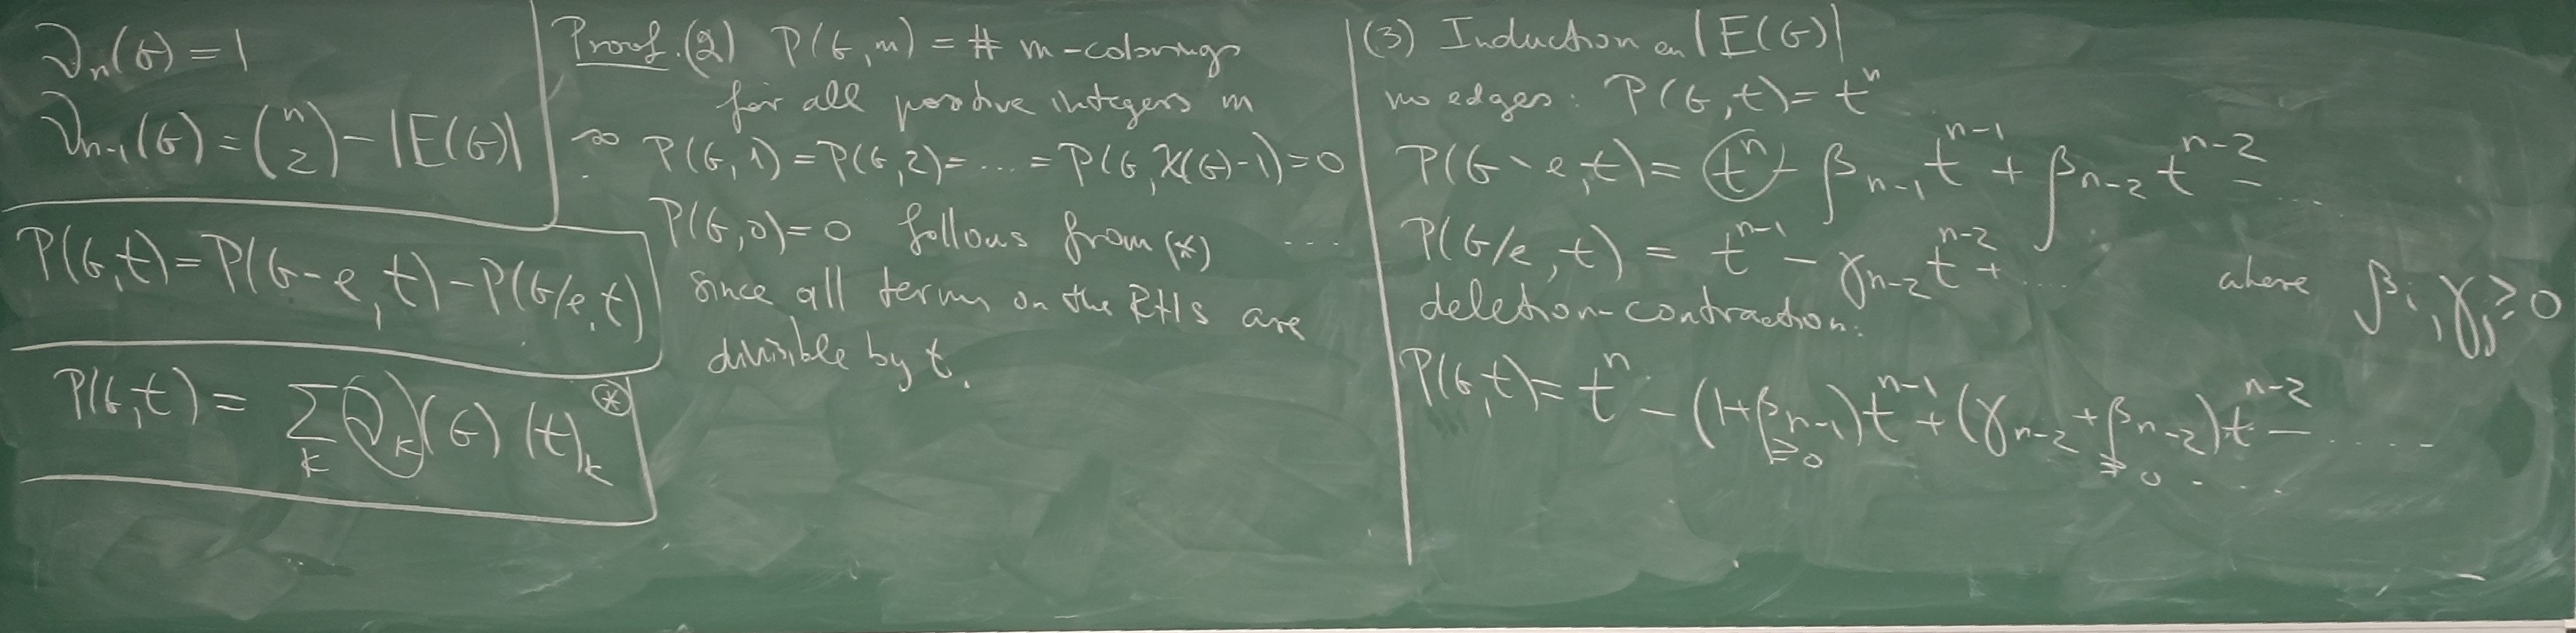 ∂n(G) = 1
∂n-1(G) = (n 2) - |E(G)|
P(G,t) = P(G-e,t) - P(G/e,t)
P(G,t) = ∑k ∂k(G) (t)k (*)
Proof. (2) P(G,m) = # m-colorings
for all positive integers m
so P(G,1) = P(G,2) = ... = P(G,χ(G)-1) = 0
P(G,0) = 0 follows from (*)
since all terms on the RHS are
divisible by t.
(3) Induction on |E(G)|
no edges: P(G,t) = t^n
P(G-e,t) = t^n - β_{n-1} t^{n-1} + β_{n-2} t^{n-2} - ....
.... P(G/e,t) = t^{n-1} - γ_{n-2} t^{n-2} + .... where βi, γj ≥ 0
deletion-contraction:
P(G,t) = t^n - (1+β_{n-1}) t^{n-1} + (γ_{n-2} + β_{n-2}) t^{n-2} - .....
≥0 ≥0 ....